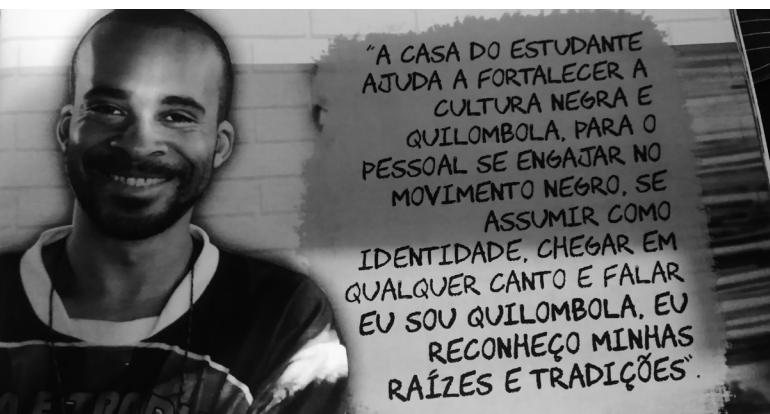 "A CASA DO ESTUDANTE
AJUDA A FORTALECER A
CULTURA NEGRA E
QUILOMBOLA, PARA O
PESSOAL SE ENGAJAR NO
MOVIMENTO NEGRO, SE
ASSUMIR COMO
IDENTIDADE, CHEGAR EM
QUALQUER CANTO E FALAR
EU SOU QUILOMBOLA, EU
RECONHEÇO MINHAS
RAÍZES E TRADIÇÕES".